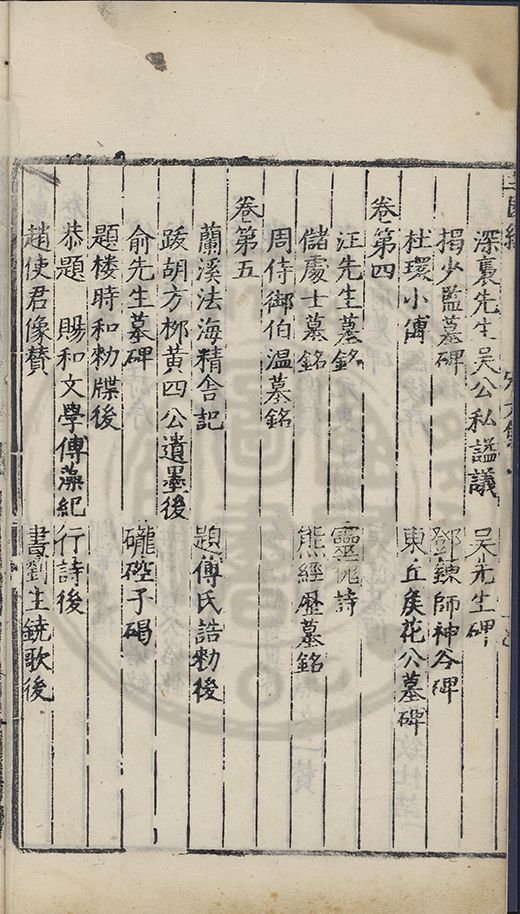 深褭先生吳公私謚議 吳先生碑
揭少監墓碑 鄧鍊師神谷碑
杜環小傳 東丘矦花公墓碑
卷第四
汪先生墓銘 靈𠖇詩
儲處士墓銘 熊經歷墓銘
周侍御伯温墓銘
卷第五
蘭溪法海精舍記 題傅氏誥勑後
跋胡方栁黃四公遺墨後
俞先生墓碑 礲硿子碣
題樓時和勑牒後
恭題 賜和文學傅藻紀行詩後
趙使君像賛 書劉生鐃歌後